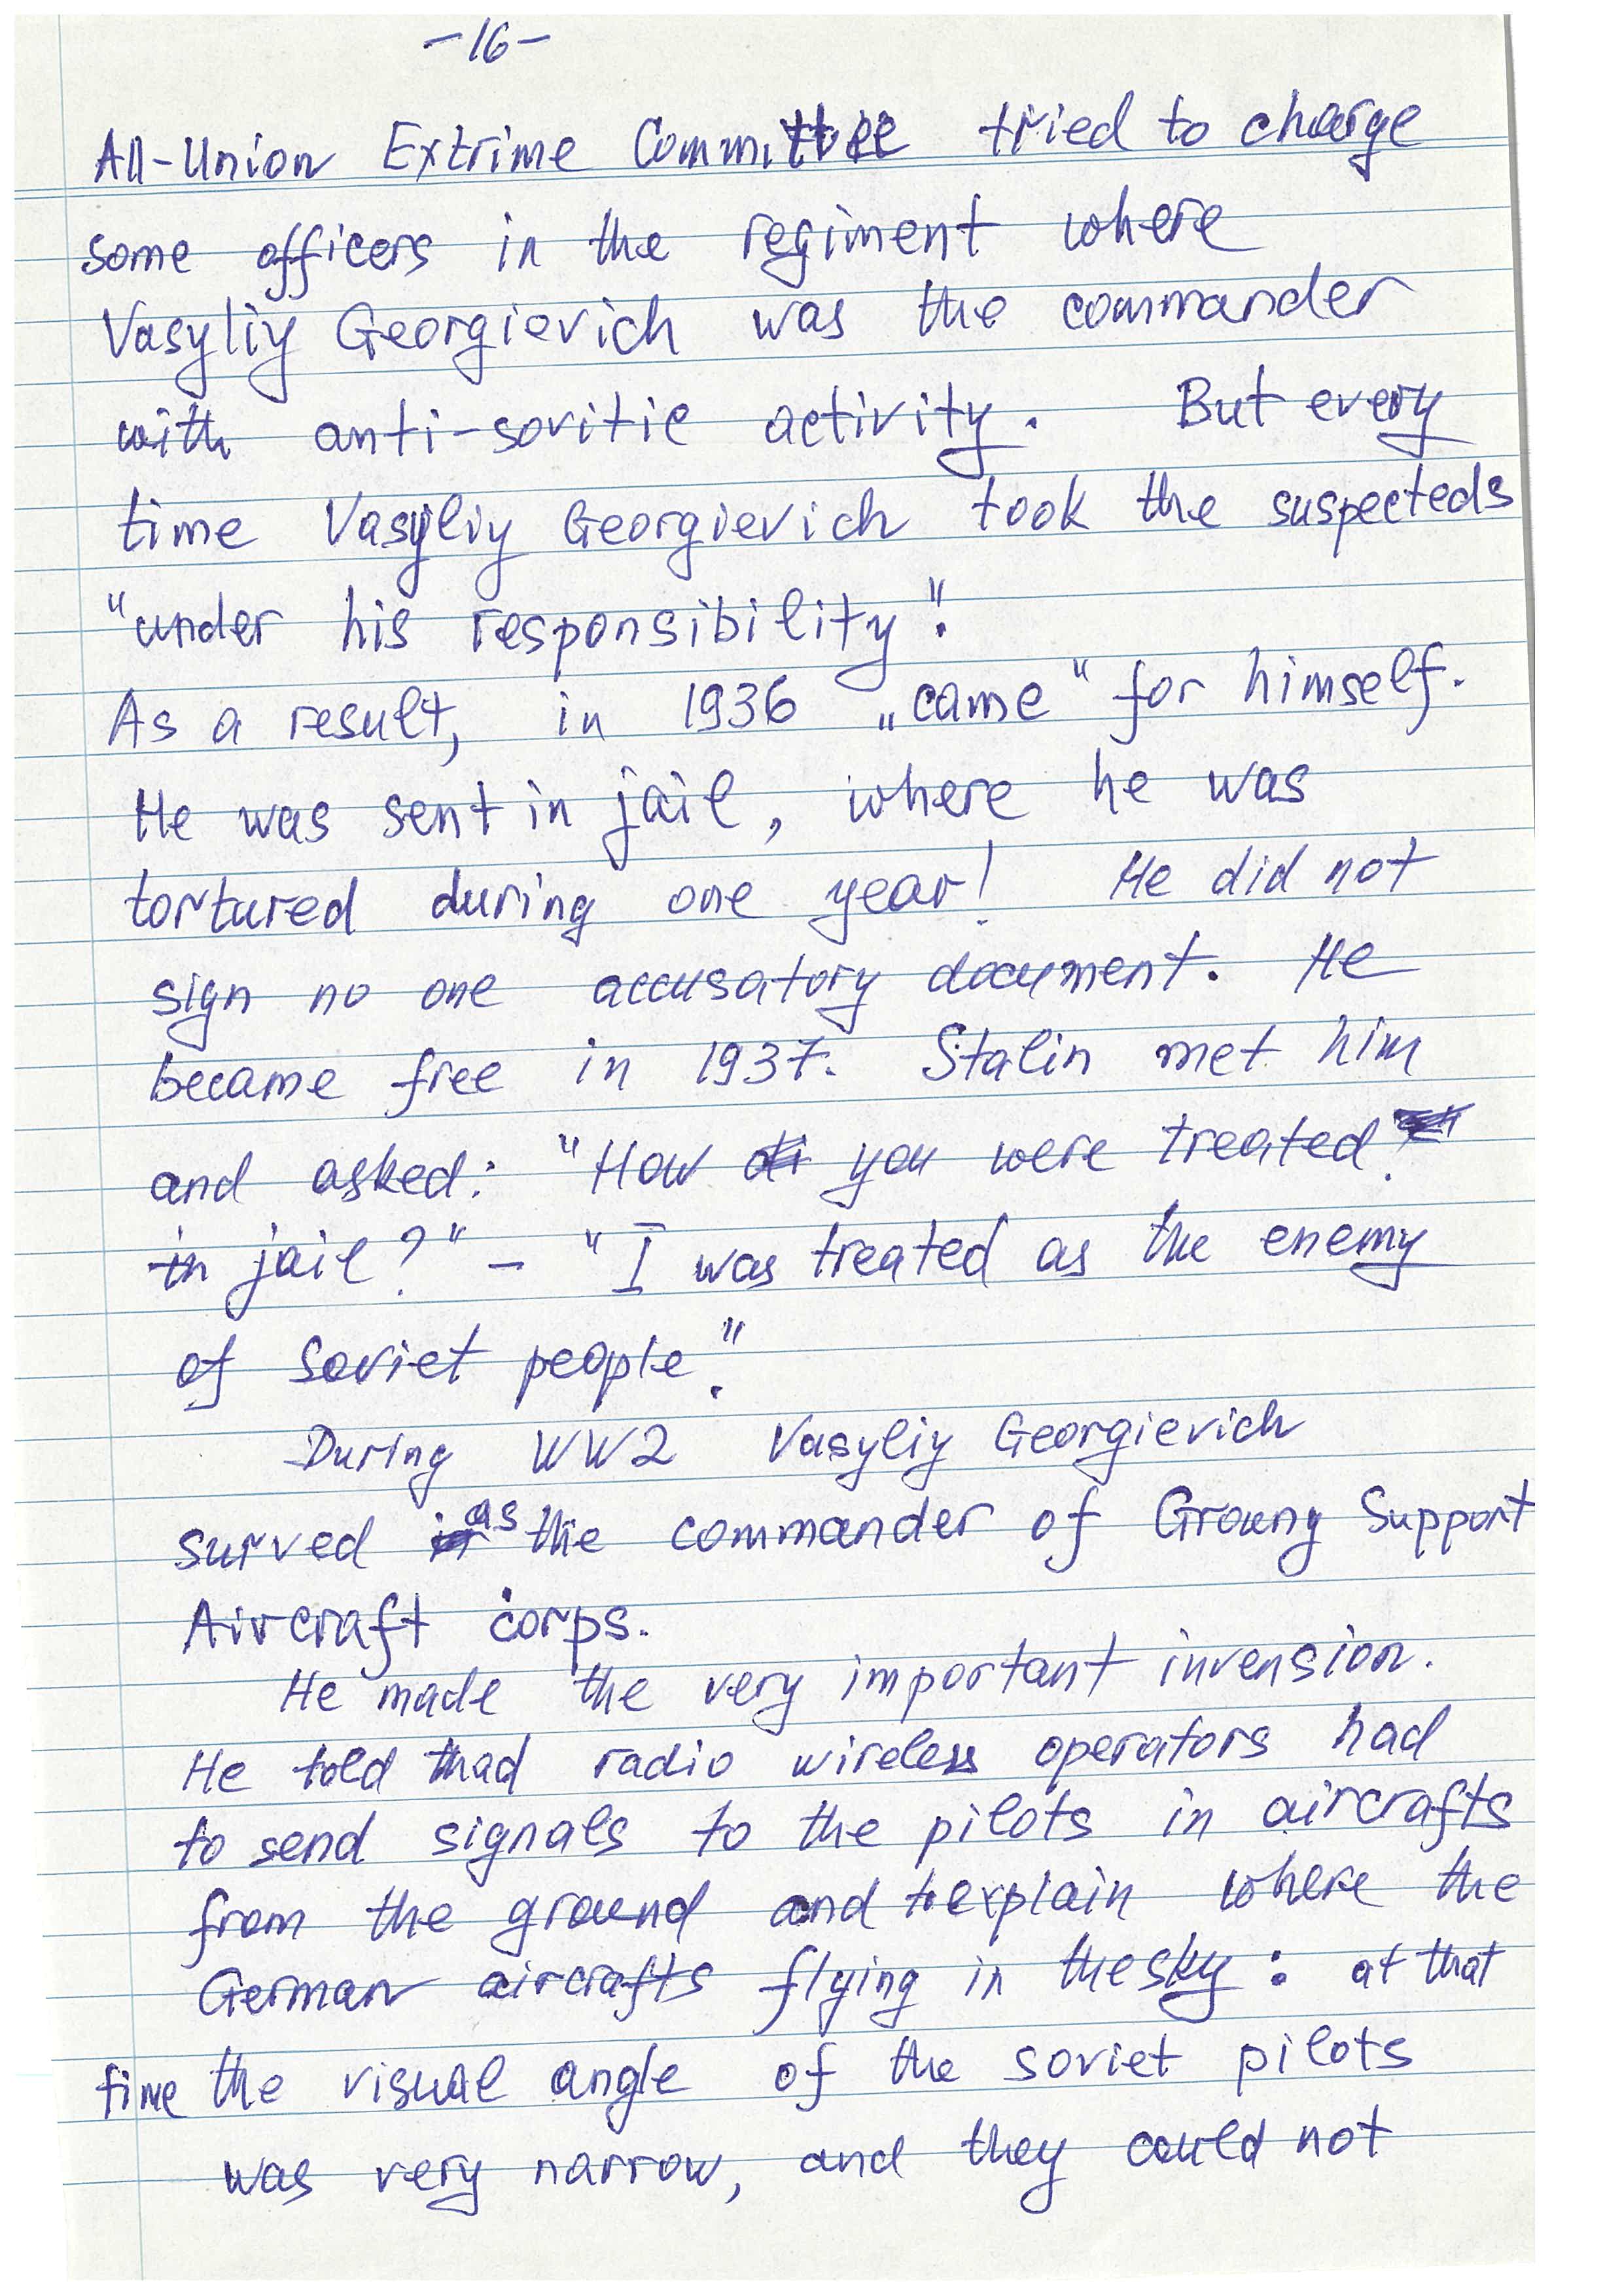 -16-
All-Union Extrime Committee tried to charge
some officers in the regiment where
Vasyliy Georgievich was the commander
with anti-sovitic activity. But every
time Vasyliy Georgievich took the suspecteds
"under his responsibility".
As a result, in 1936 „came" for himself.
He was sent in jail, where he was
tortured during one year! He did not
sign no one accusatory document. He
became free in 1937. Stalin met him
and asked: "How you were treated?
in jail?" - "I was treated as the enemy
of Soviet people."
During WW2 Vasyliy Georgievich
surved as the commander of Groung Support
Aircraft corps.
He made the very important invension.
He told thad radio wireless operators had
to send signals to the pilots in aircrafts
from the ground and to explain where the
German aircrafts flying in the sky: at that
time the visual angle of the soviet pilots
was very narrow, and they could not